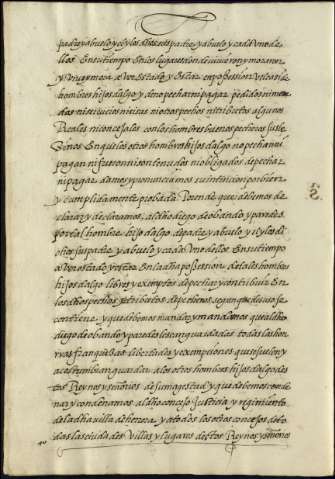 padre y abuelo y el y los dhos su padre y abuelo y cada vno de
llos En su tiempo En los lugares donde viuieron y moraron
y Vn y mera a Vos Estado y Estar en possession Vel casi de
hombres hijos dalgo y de no pechar ni pagar pedidos ni mone
das ni seruicios ni otros pechos ni tributos algunos
Reales ni conçejales con los hombres buenos pecheros sus Ve
zinos En que los otros hombres hijos dalgo no pechan ni
pagan ni fueron ni son tenudos ni obligados de pechar
ni pagar damos y pronunciamos su intincion por bien
y cumplidamente probada Por ende que deuemos de
clarar y declaramos al dho diego de obando y paredes
por tal hombre hijo dalgo de padre y abuelo y el y los di
chos su padre y abuelo y cada Vno dellos En su tiempo
En la dha possession de tales hombres
hijos dalgo libres y exemptos de pechar y contribuir En
los dhos pechos y tributos de pecheros segun que de suso se
contiene y que debemos mandar y mandamos que al dho
diego de obando y paredes le sean guardadas todas las hon
rras franquezas libertades y exempciones que se suelen y
acostumbran guardar a los otros hombres hijos dalgo des
tos Reynos y señorios de su magestad y que debemos conde
nar y condenamos al dho conçejo Justicia y regimiento
de la dha villa de y a todos los otros conçejos de to
das las ciudades Villas y lugares destos Reynos y señorios